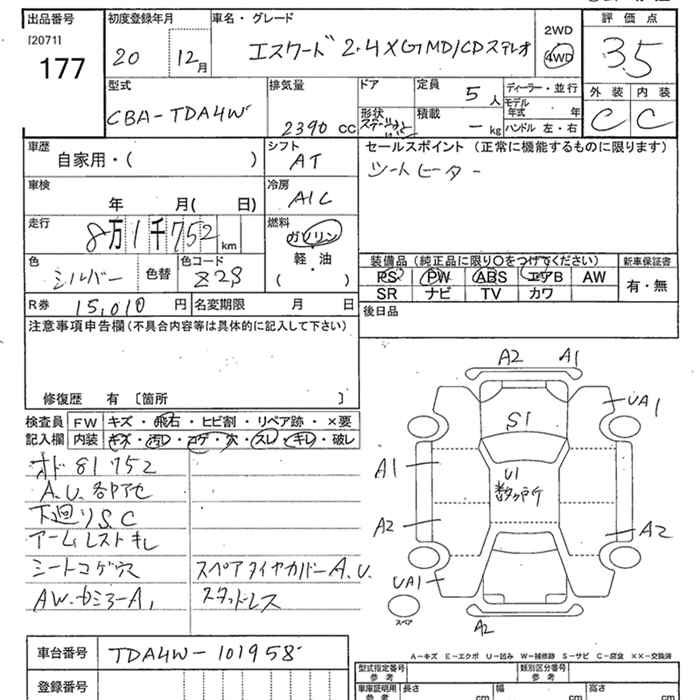 出品番号 初度登録年月 車名・グレード 2WD 評価点
[2071] 177 20 12月 エスクード 2.4XG MD/CDステレオ 4WD 3.5
型式 排気量 ドア 定員 5人 ディーラー・並行 外装 内装
CBA-TDA4W 2390cc 形状 積載 - kg モデル年式 年 C C
ハンドル 左・右
車歴 シフト セールスポイント (正常に機能するものに限ります)
自家用・( ) AT シートヒーター
車検 冷房
年 月( 日) A/C
走行 燃料
8万1千752km ガソリン
軽・油
( )
色 シルバー 色替 色コード Z2S
装備品 (純正品に限り○をつけてください) 新車保証書
PS PW ABS エアB AW 有・無
SR ナビ TV カワ
R券 15,010円 名変期限 月 日 後日品
注意事項申告欄 (不具合内容等は具体的に記入して下さい)
修復歴 有 〔箇所 〕
検査員 FW キズ・飛石・ヒビ割・リペア跡・×要
記入欄 内装 キズ・汚レ・コゲ・穴・スレ・キレ・破レ
オド 81752
A.U.各部アセ
下廻りS.C
アームレストキレ
シートコゲ穴 スペアタイヤカバーA.U.
AW.カミラーA1 スタッドレス
A2 A1
UA1
S1
A1
U1
数ヶ所
A2 A2
UA1
スペア
A2
A-キズ E-エクボ U-凹み W-補修跡 S-サビ C-腐食 XX-交換済
車台番号 TDA4W-101958
型式指定番号 参考 類別区分番号 参考
登録番号 車庫証明用 参考 長さ cm 幅 cm 高さ cm